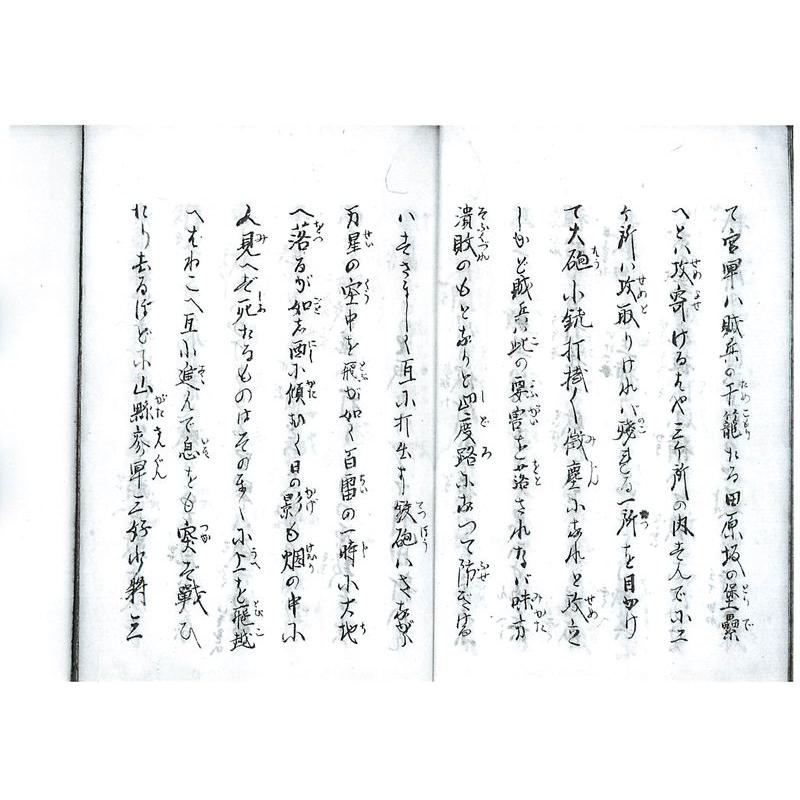 て官軍ハ賊兵の千籠たる田原坂の堡壘
へとハ攻寄けるはや三ヶ所の内すんでに二
ヶ所ハ攻取りけれバ残れる一所を目がけ
て大砲小銃打掛く微塵になれと攻立
しかど賊兵ハ此の要害を落されなバ味方
潰敗のもとなりと四度路になつて防ぎける
ハすさまじく互に打出す鉄砲ハさながら
万星の空中を飛が如く百雷の一時に大地
へ落るが如し西に傾むく日の影も烟の中に
見へず死たるものはその上を飛越
へ互に進んで息をも突ず戦ひ
たり去るほどに山縣参軍三好少将